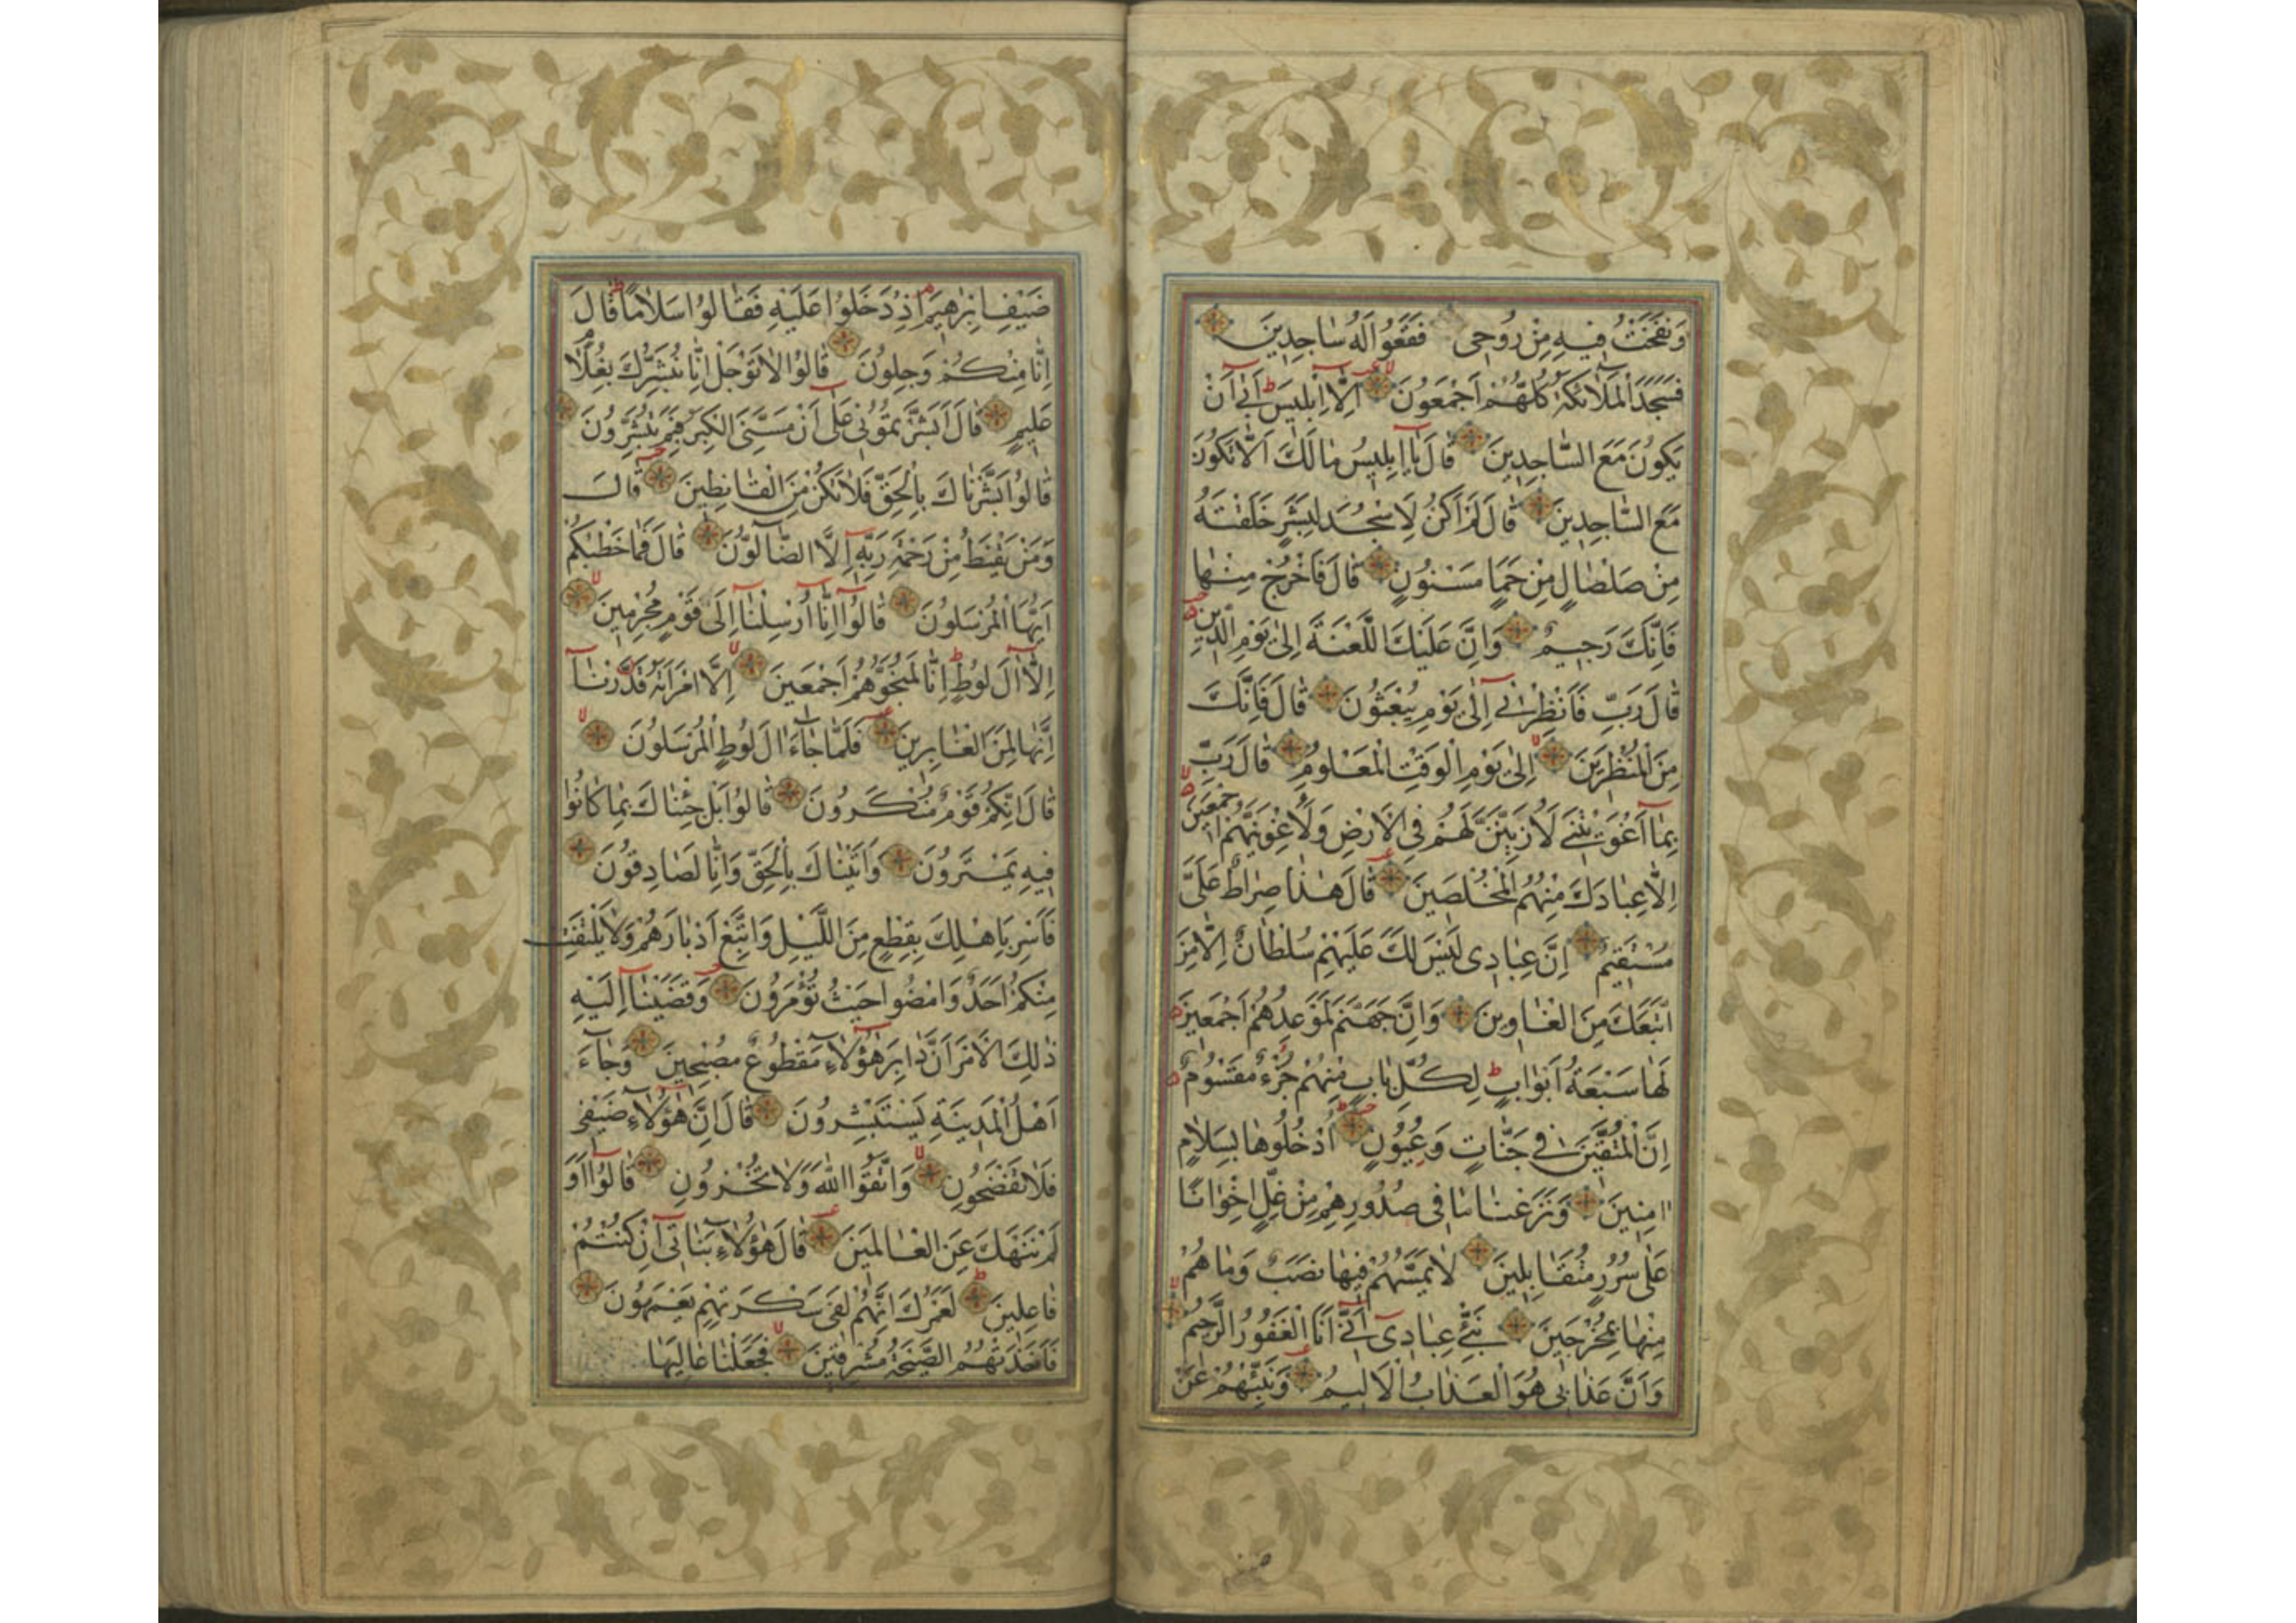 وَنَفَخْتُ فِيهِ مِنْ رُوحِى فَقَعُوا لَهُ سَاجِدِينَ
فَسَجَدَ الْمَلَائِكَةُ كُلُّهُمْ أَجْمَعُونَ إِلَّا إِبْلِيسَ أَبَىٰ أَنْ
يَكُونَ مَعَ السَّاجِدِينَ قَالَ يَا إِبْلِيسُ مَا لَكَ أَلَّا تَكُونَ
مَعَ السَّاجِدِينَ قَالَ لَمْ أَكُنْ لِأَسْجُدَ لِبَشَرٍ خَلَقْتَهُ
مِنْ صَلْصَالٍ مِنْ حَمَإٍ مَسْنُونٍ قَالَ فَاخْرُجْ مِنْهَا
فَإِنَّكَ رَجِيمٌ وَإِنَّ عَلَيْكَ اللَّعْنَةَ إِلَىٰ يَوْمِ الدِّينِ
قَالَ رَبِّ فَأَنْظِرْنِى إِلَىٰ يَوْمِ يُبْعَثُونَ قَالَ فَإِنَّكَ
مِنَ الْمُنْظَرِينَ إِلَىٰ يَوْمِ الْوَقْتِ الْمَعْلُومِ قَالَ رَبِّ
بِمَا أَغْوَيْتَنِى لَأُزَيِّنَنَّ لَهُمْ فِى الْأَرْضِ وَلَأُغْوِيَنَّهُمْ أَجْمَعِينَ
إِلَّا عِبَادَكَ مِنْهُمُ الْمُخْلَصِينَ قَالَ هَٰذَا صِرَاطٌ عَلَىَّ
مُسْتَقِيمٌ إِنَّ عِبَادِى لَيْسَ لَكَ عَلَيْهِمْ سُلْطَانٌ إِلَّا مَنِ
اتَّبَعَكَ مِنَ الْغَاوِينَ وَإِنَّ جَهَنَّمَ لَمَوْعِدُهُمْ أَجْمَعِينَ
لَهَا سَبْعَةُ أَبْوَابٍ لِكُلِّ بَابٍ مِنْهُمْ جُزْءٌ مَقْسُومٌ
إِنَّ الْمُتَّقِينَ فِى جَنَّاتٍ وَعُيُونٍ أُدْخُلُوهَا بِسَلَامٍ
آمِنِينَ وَنَزَعْنَا مَا فِى صُدُورِهِمْ مِنْ غِلٍّ إِخْوَانًا
عَلَىٰ سُرُرٍ مُتَقَابِلِينَ لَا يَمَسُّهُمْ فِيهَا نَصَبٌ وَمَا هُمْ
مِنْهَا بِمُخْرَجِينَ نَبِّئْ عِبَادِى أَنِّى أَنَا الْغَفُورُ الرَّحِيمُ
وَأَنَّ عَذَابِى هُوَ الْعَذَابُ الْأَلِيمُ وَنَبِّئْهُمْ عَنْ
ضَيْفِ إِبْرَٰهِيمَ إِذْ دَخَلُوا عَلَيْهِ فَقَالُوا سَلَامًا قَالَ
إِنَّا مِنْكُمْ وَجِلُونَ قَالُوا لَا تَوْجَلْ إِنَّا نُبَشِّرُكَ بِغُلَامٍ
عَلِيمٍ قَالَ أَبَشَّرْتُمُونِى عَلَىٰ أَنْ مَسَّنِىَ الْكِبَرُ فَبِمَ تُبَشِّرُونَ
قَالُوا بَشَّرْنَاكَ بِالْحَقِّ فَلَا تَكُنْ مِنَ الْقَانِطِينَ قَالَ
وَمَنْ يَقْنَطُ مِنْ رَحْمَةِ رَبِّهِ إِلَّا الضَّالُّونَ قَالَ فَمَا خَطْبُكُمْ
أَيُّهَا الْمُرْسَلُونَ قَالُوا إِنَّا أُرْسِلْنَا إِلَىٰ قَوْمٍ مُجْرِمِينَ
إِلَّا آلَ لُوطٍ إِنَّا لَمُنَجُّوهُمْ أَجْمَعِينَ إِلَّا امْرَأَتَهُ قَدَّرْنَا
إِنَّهَا لَمِنَ الْغَابِرِينَ فَلَمَّا جَاءَ آلَ لُوطٍ الْمُرْسَلُونَ
قَالَ إِنَّكُمْ قَوْمٌ مُنْكَرُونَ قَالُوا بَلْ جِئْنَاكَ بِمَا كَانُوا
فِيهِ يَمْتَرُونَ وَأَتَيْنَاكَ بِالْحَقِّ وَإِنَّا لَصَادِقُونَ
فَأَسْرِ بِأَهْلِكَ بِقِطْعٍ مِنَ اللَّيْلِ وَاتَّبِعْ أَدْبَارَهُمْ وَلَا يَلْتَفِتْ
مِنْكُمْ أَحَدٌ وَامْضُوا حَيْثُ تُؤْمَرُونَ وَقَضَيْنَا إِلَيْهِ
ذَٰلِكَ الْأَمْرَ أَنَّ دَابِرَ هَٰؤُلَاءِ مَقْطُوعٌ مُصْبِحِينَ وَجَاءَ
أَهْلُ الْمَدِينَةِ يَسْتَبْشِرُونَ قَالَ إِنَّ هَٰؤُلَاءِ ضَيْفِى
فَلَا تَفْضَحُونِ وَاتَّقُوا اللَّهَ وَلَا تُخْزُونِ قَالُوا أَوَ
لَمْ نَنْهَكَ عَنِ الْعَالَمِينَ قَالَ هَٰؤُلَاءِ بَنَاتِى إِنْ كُنْتُمْ
فَاعِلِينَ لَعَمْرُكَ إِنَّهُمْ لَفِى سَكْرَتِهِمْ يَعْمَهُونَ
فَأَخَذَتْهُمُ الصَّيْحَةُ مُشْرِقِينَ فَجَعَلْنَا عَالِيَهَا